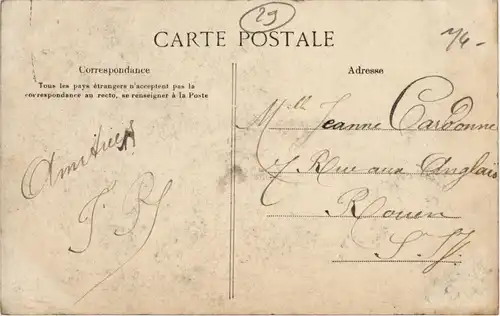 29
CARTE POSTALE
7/4-
Correspondance
Tous les pays étrangers n'acceptent pas la
correspondance au recto, se renseigner à la Poste
Amitiés
Adresse
Mlle Jeanne Cardonne
7 Rue aux Anglais
Rouen
S. If.